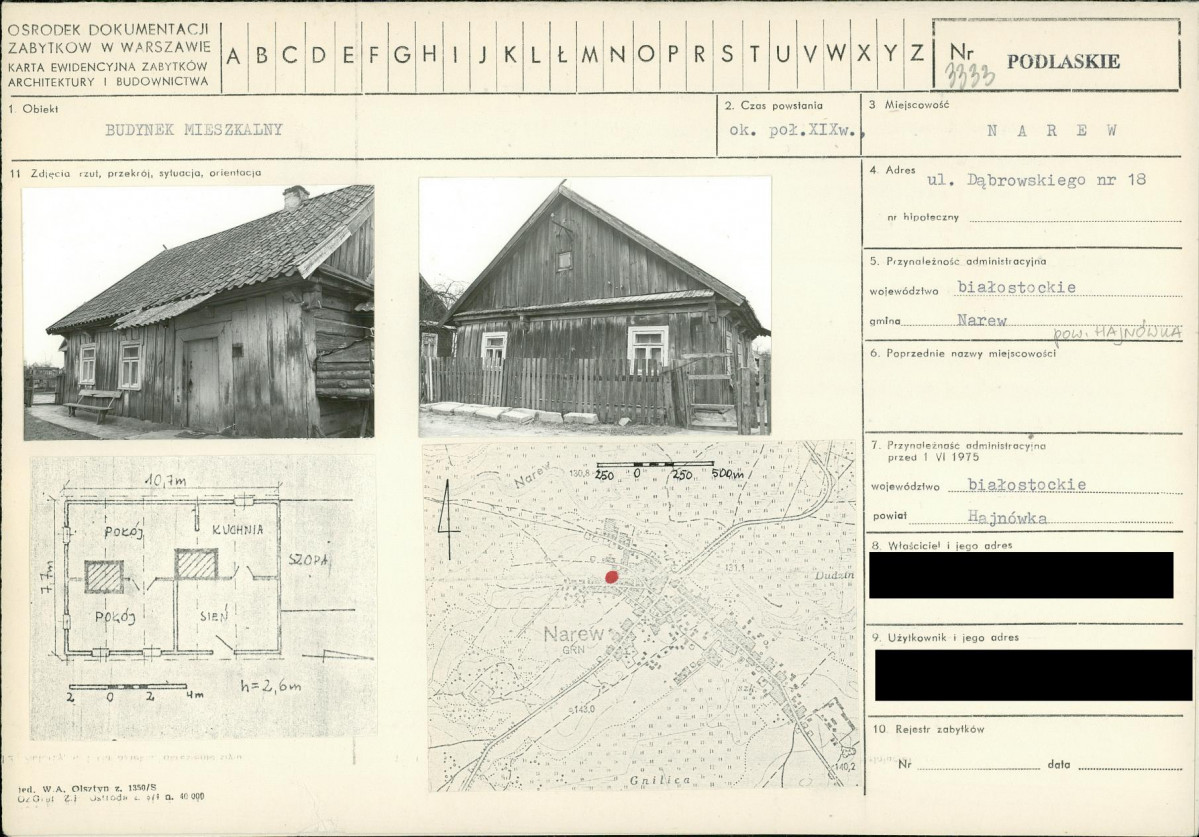 OŚRODEK DOKUMENTACJI
ZABYTKÓW W WARSZAWIE
KARTA EWIDENCYJNA ZABYTKÓW
ARCHITEKTURY I BUDOWNICTWA
A B C D E F G H I J K L Ł M N O P R S T U V W X Y Z
Nr 3333 PODLASKIE
1. Obiekt
BUDYNEK MIESZKALNY
2. Czas powstania
ok. poł.XIXw.,
3 Miejscowość
N A R E W
11 Zdjęcia rzut, przekrój, sytuacja, orientacja
4. Adres ul. Dąbrowskiego nr 18
nr hipoteczny
5. Przynależność administracyjna
województwo białostockie
gmina Narew
pow. HAJNÓWKA
6. Poprzednie nazwy miejscowości
7. Przynależność administracyjna
przed 1 VI 1975
województwo białostockie
powiat Hajnówka
8. Właściciel i jego adres
9. Użytkownik i jego adres
10. Rejestr zabytków
Nr data
10,7m
7,7m
POKÓJ
KUCHNIA
SZOPA
POKÓJ
SIEŃ
2 0 2 4m
h=2,6m
Narew
130,8
250 0 250 500m
131,1
Dudzin
Narew
GRN
143,0
140,2
Gnilica
ted. W.A. Olsztyn z. 1350/S